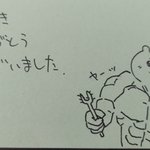 き
がとう
ざいました.
ヤーッ